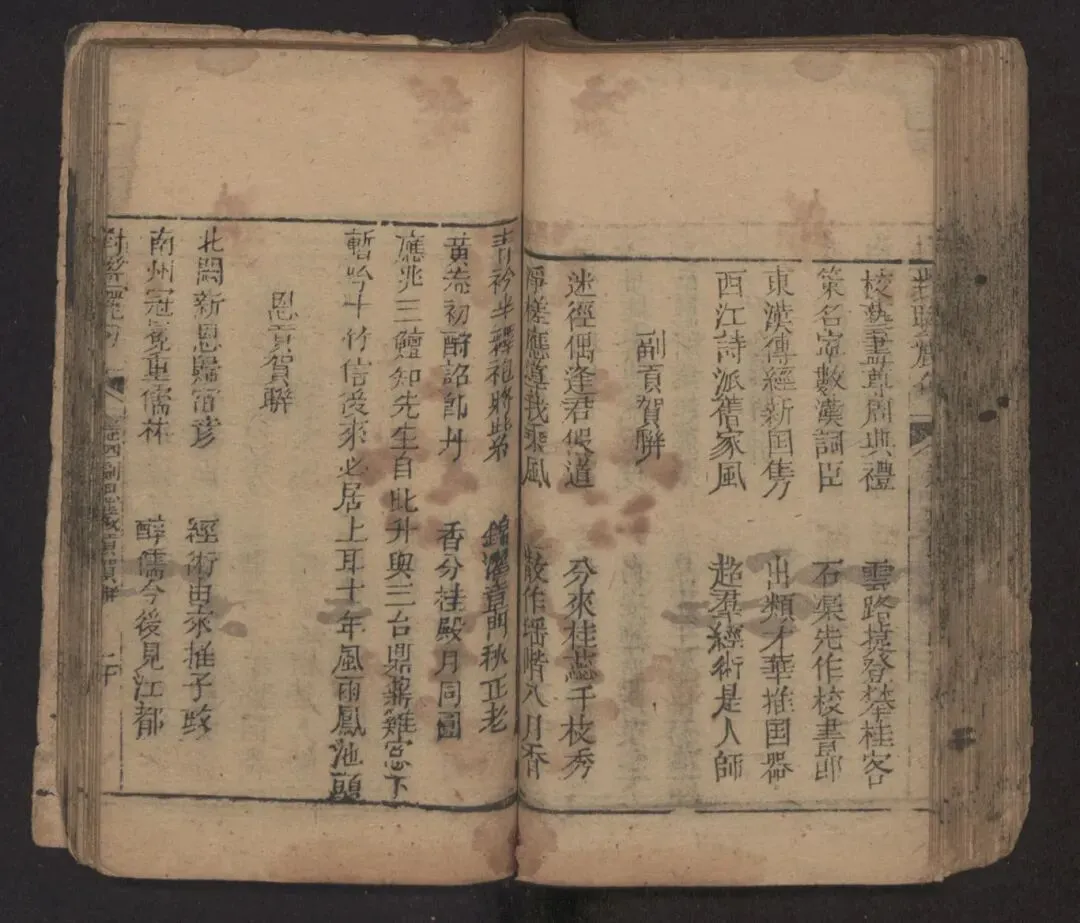 校藝書尊周典禮　雲路捷登攀桂客
策名寧數漢詞臣　石渠先作校書郎
東漢傳經新国雋　出類才華推国器
西江詩派舊家風　超羣經術是人師
副貢賀聯
迷徑偶逢君假道　分來桂蕊千枝秀
浮槎應導我乘風　散作瑤階八月香
青衿半襗袍將紫　錦濯章門秋正老
黃麻初酧詔卽丹　香分桂殿月同圓
應兆三鱣知先生自此升與三台鼎薦雞窓下
暫吟十竹信後來必居上耳十年風雨鳳池頭
恩貢賀聯
北闕新恩歸宿彥　經術由來推子政
南州冠冕重儒林　醇儒今後見江都
卷四 貢賀聯